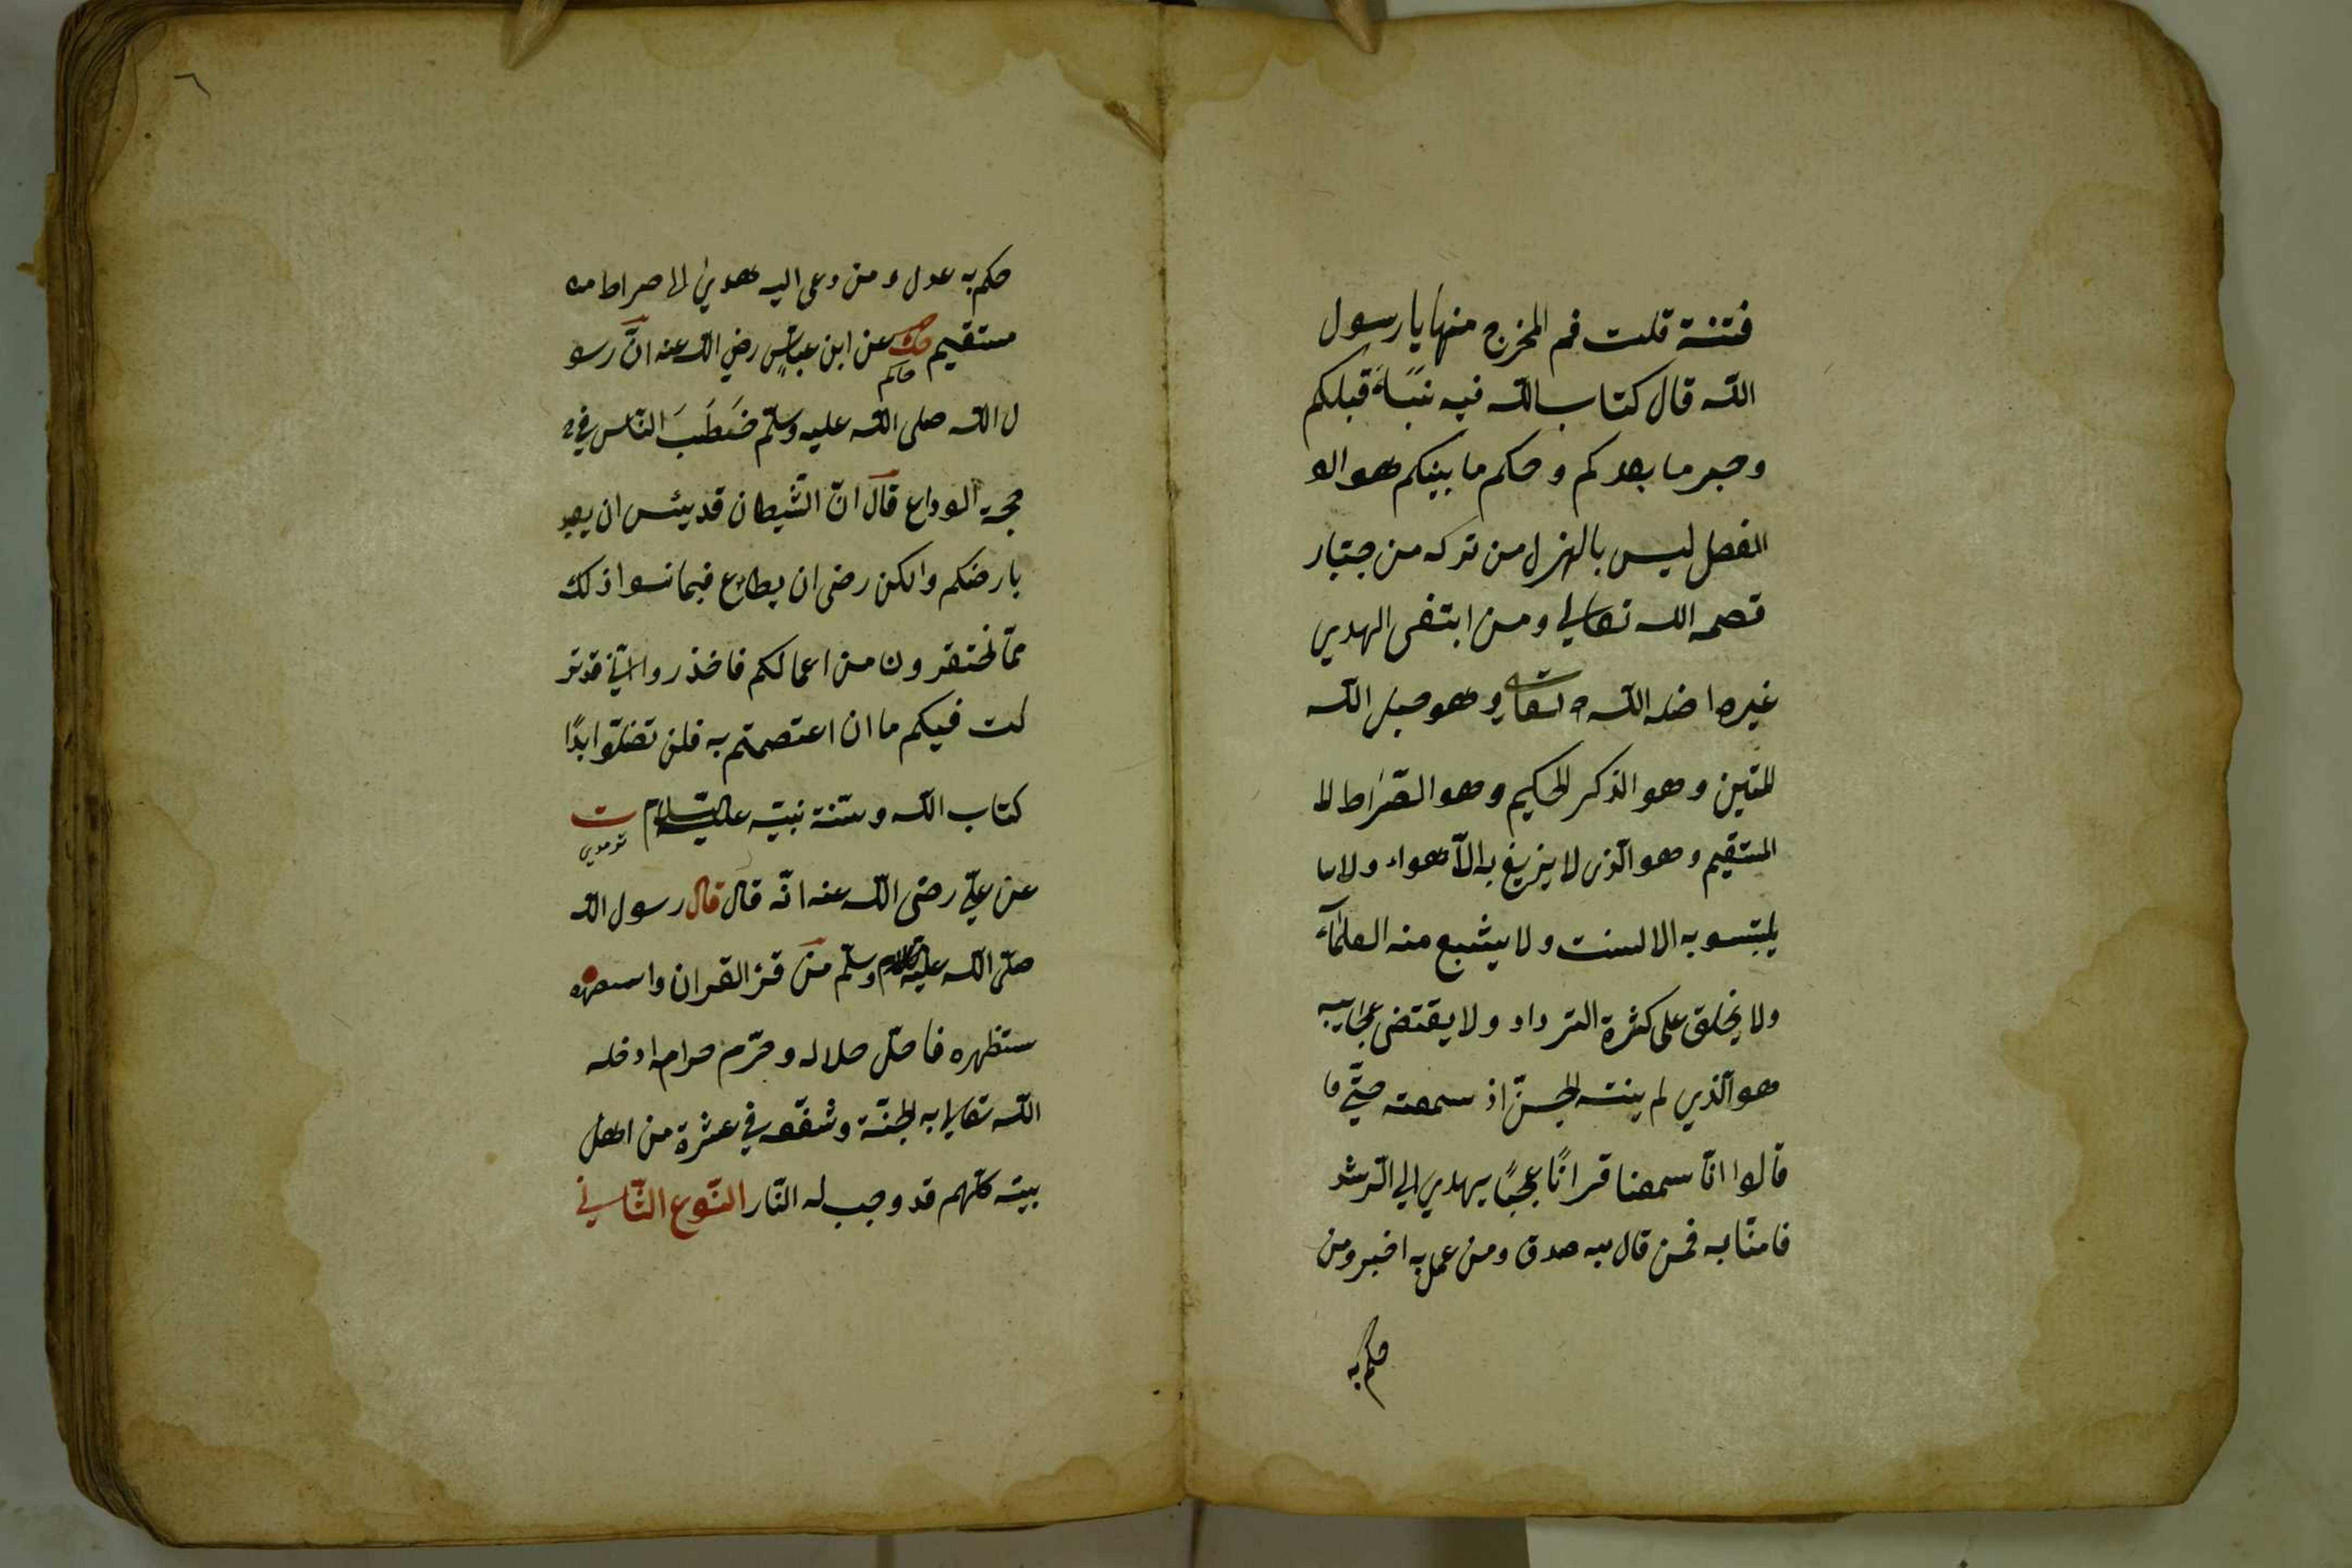 فتنة قلت فم المخرج منها يا رسول
اللّه قال كتاب اللّه فيه نبَاَءُ قبلكم
وخبر ما بعدكم وحكم ما بينكم هو الـ
الفصل ليس بالهزل من تركه من جبّار
قصمه اللّه تعالي ومن ابتغى الهدي
غيره اضله اللّه تعالي وهو حبل اللّه
المتين وهو الذكر الحكيم وهو الصّراط الـ
المستقيم وهو الّذى لا يزيغ به الآهواء ولا يـا
يلتبسو به الالسنت ولا يشبع منه العلمآء
ولا يخلق على كثرة الترداد ولا يقتضى عجايبه
هو الّذي لم ينته الجنّ اذ سمعته حتّي
قالوا انّا سمعنا قرانًا عجبًا يهدي الي الرّشد
فامنّا به فمن قال به صدق ومن عمل به اخبر ومن
حكم به
٦
حكم به عدل ومن دعى اليه هدي الى صراط مـ
مستقيم حك عن ابن عبّاسٍ رضي اللّه عنه انّ رسو
حاكم
ل اللّه صلى اللّه عليه وسلّم خَطَبَ النّاس في
حجة الوداع قال انّ الشّيطان قد يئس ان يعبد
بارضكم والكن رضى ان يطاع فيما سوا ذلك
ممّا تحتقرون من اعمالكم فاحذروا انّي قد تر
كت فيكم ما ان اعتصمتم به فلن تضلّوا ابدًا
كتاب اللّه وسنّة نبيّه عليه السّلام ت
ترمدي
عن عليّ رضى اللّه عنه انّه قال قال رسول اللّه
صلّى اللّه عليه وسلّم من قرء القران وا
ستظهره فاحلّ حلاله وحرّم حرامه ادخله
اللّه تعالي به الجنّة وشفّعه في عشرة من اهل
بيته كلّهم قد وجب له النّار النّوع الثّاني